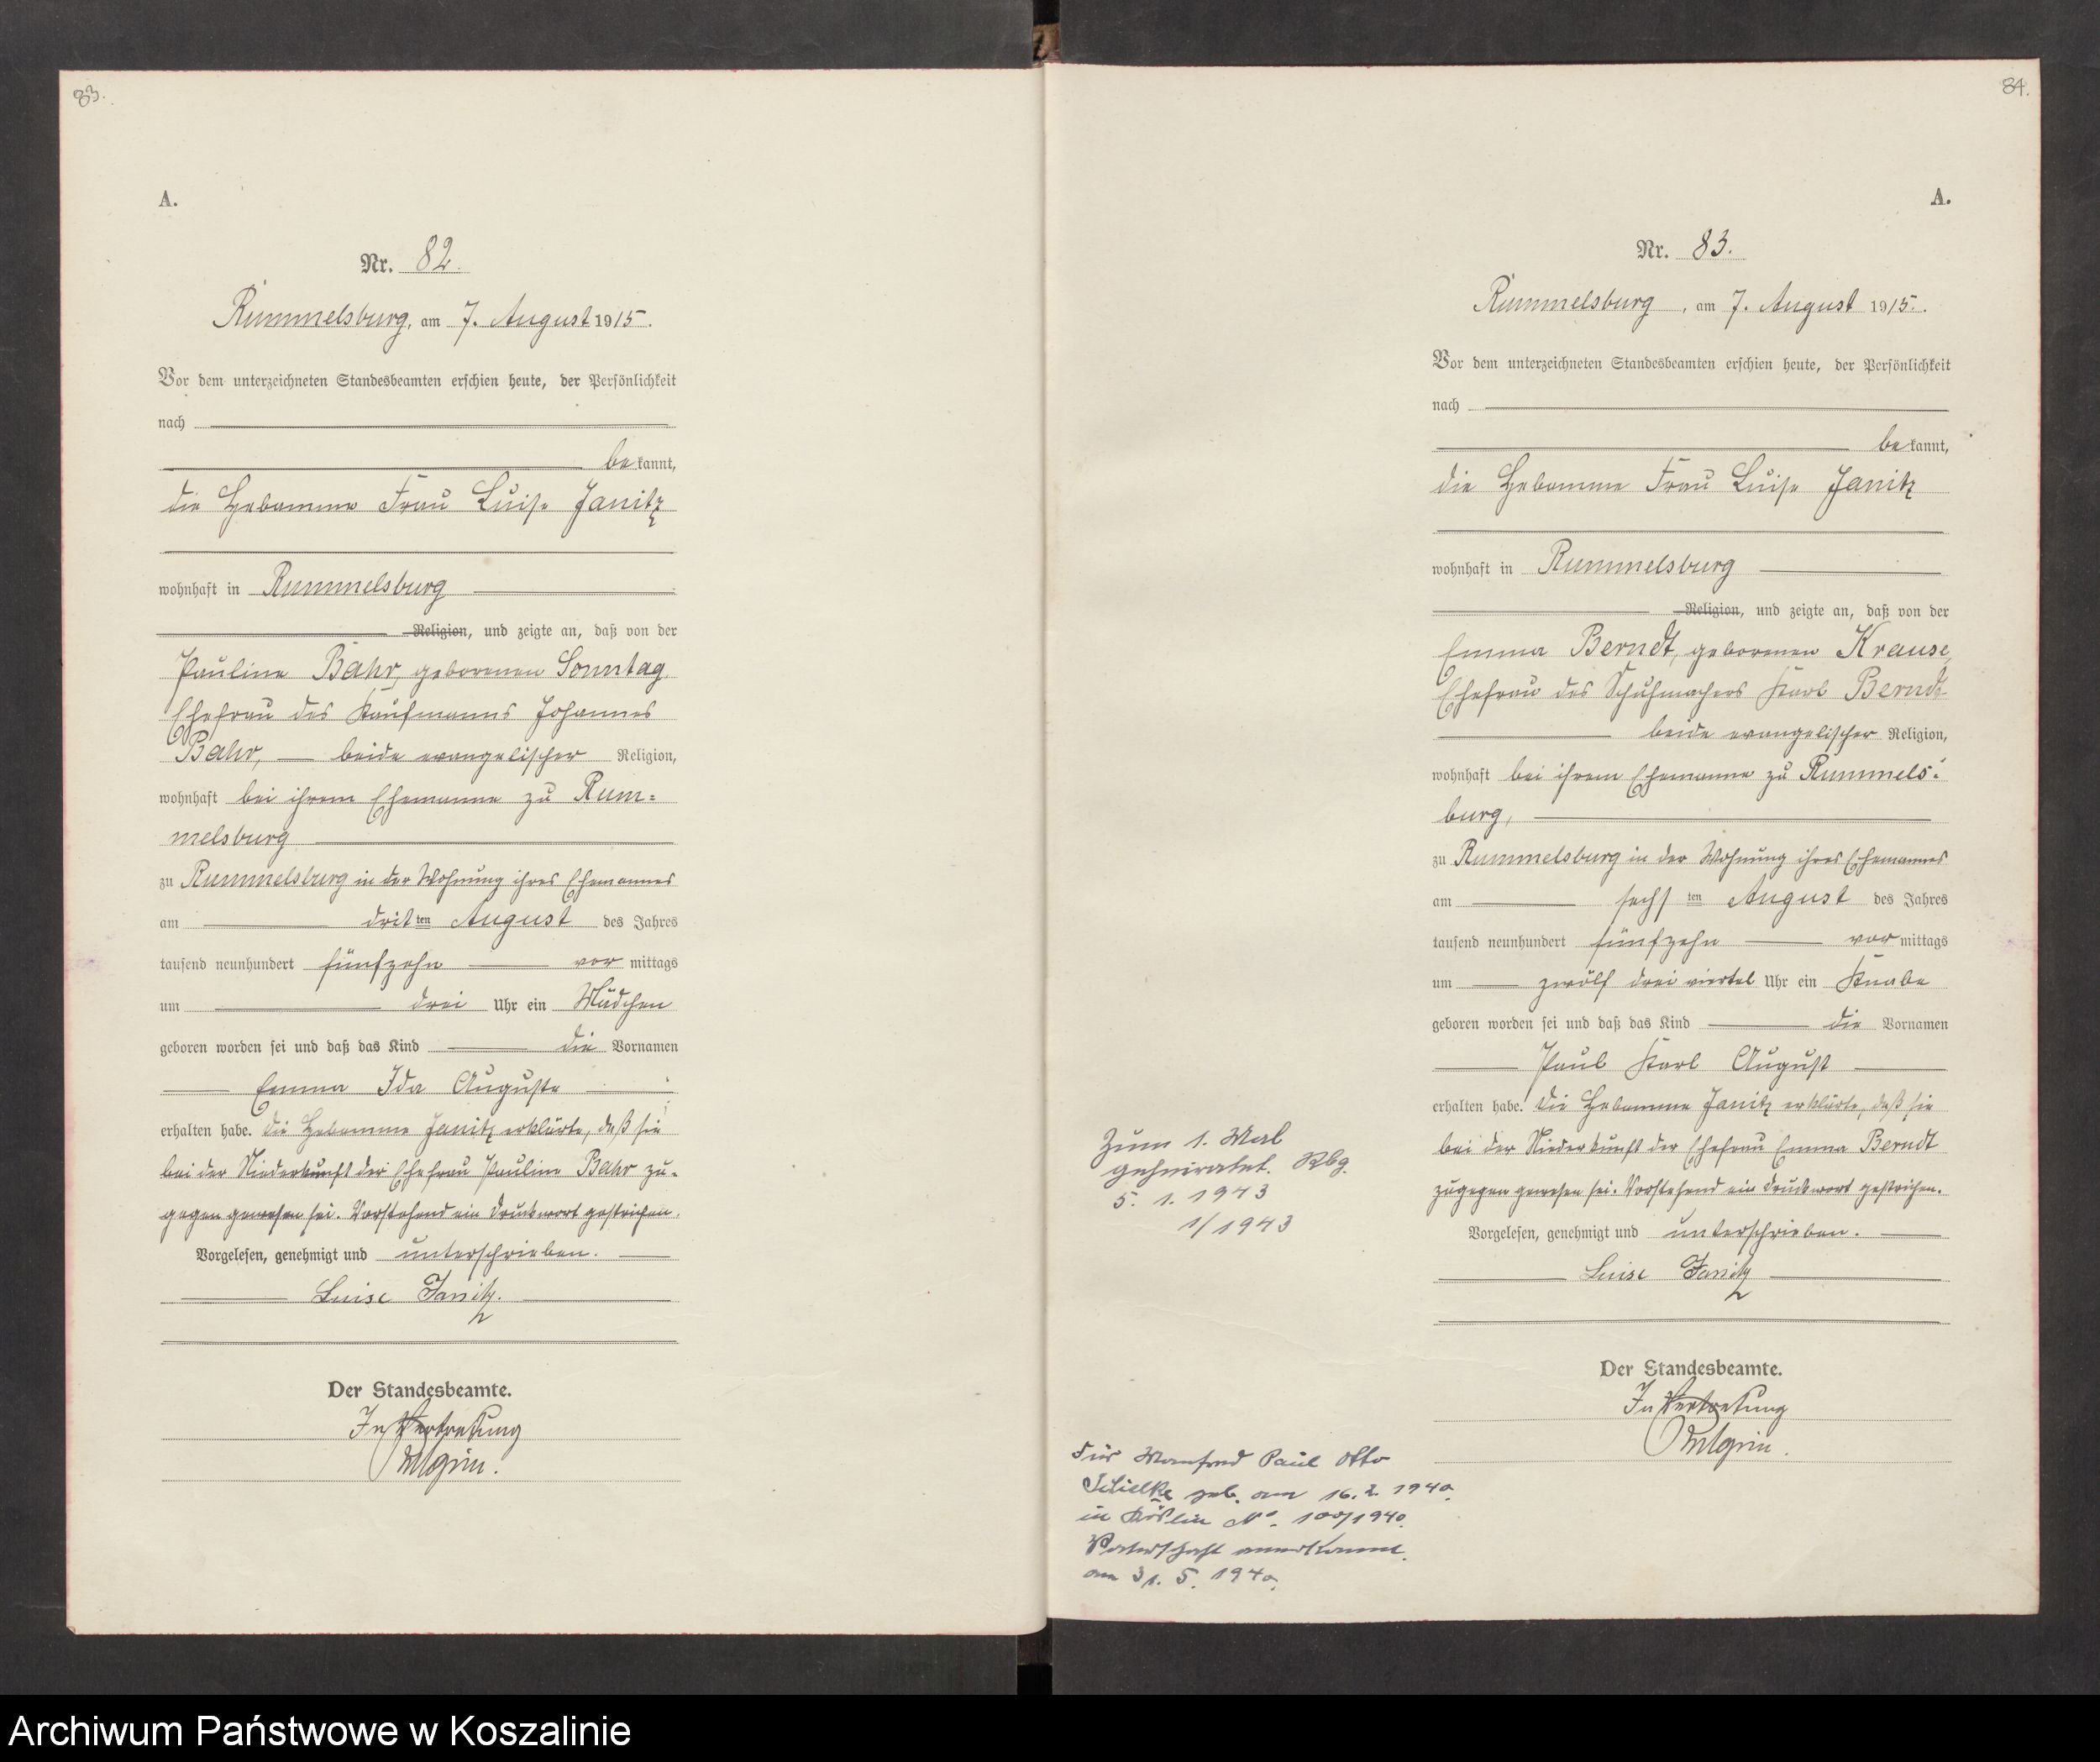 83.
A.
Nr. 82.
Rummelsburg, am 7. August 1915.
Vor dem unterzeichneten Standesbeamten erschien heute, der Persönlichkeit
nach
be kannt,
die Hebamme Frau Luise Janitz
wohnhaft in Rummelsburg
Religion, und zeigte an, daß von der
Pauline Bahr, geborenen Sonntag,
Ehefrau des Kaufmanns Johannes
Bahr, beide evangelischer Religion,
wohnhaft bei ihrem Ehemanne zu Rum=
melsburg
zu Rummelsburg in der Wohnung ihres Ehemannes
am dritten August des Jahres
tausend neunhundert fünfzehn vor mittags
um drei Uhr ein Mädchen
geboren worden sei und daß das Kind die Vornamen
Emma Ida Auguste
erhalten habe. Die Hebamme Janitz erklärte, daß sie
bei der Niederkunft der Ehefrau Pauline Bahr zu=
gegen gewesen sei. Vorstehend ein Druckwort gestrichen.
Vorgelesen, genehmigt und unterschrieben.
Luise Janitz.
Der Standesbeamte.
In Vertretung
84.
A.
Nr. 83.
Rummelsburg, am 7. August 1915.
Vor dem unterzeichneten Standesbeamten erschien heute, der Persönlichkeit
nach
be kannt,
die Hebamme Frau Luise Janitz
wohnhaft in Rummelsburg
Religion, und zeigte an, daß von der
Emma Berndt, geborenen Krause,
Ehefrau des Schuhmachers Karl Berndt
beide evangelischer Religion,
wohnhaft bei ihrem Ehemanne zu Rummels=
burg,
zu Rummelsburg in der Wohnung ihres Ehemannes
am sechsten August des Jahres
tausend neunhundert fünfzehn vor mittags
um zwölf drei viertel Uhr ein Knabe
geboren worden sei und daß das Kind die Vornamen
Paul Karl August
erhalten habe. Die Hebamme Janitz erklärte, daß sie
bei der Niederkunft der Ehefrau Emma Berndt
zugegen gewesen sei. Vorstehend ein Druckwort gestrichen.
Vorgelesen, genehmigt und unterschrieben.
Luise Janitz
Der Standesbeamte.
In Vertretung
Zum 1. Mal
geheiratet. Rbg.
5. 1. 1943
1/1943
Für Manfred Paul Otto
geb. am 16. 2. 1940.
in Köslin No. 100/1940.
Vaterschaft anerkannt.
am 31. 5. 1940.
Archiwum Państwowe w Koszalinie